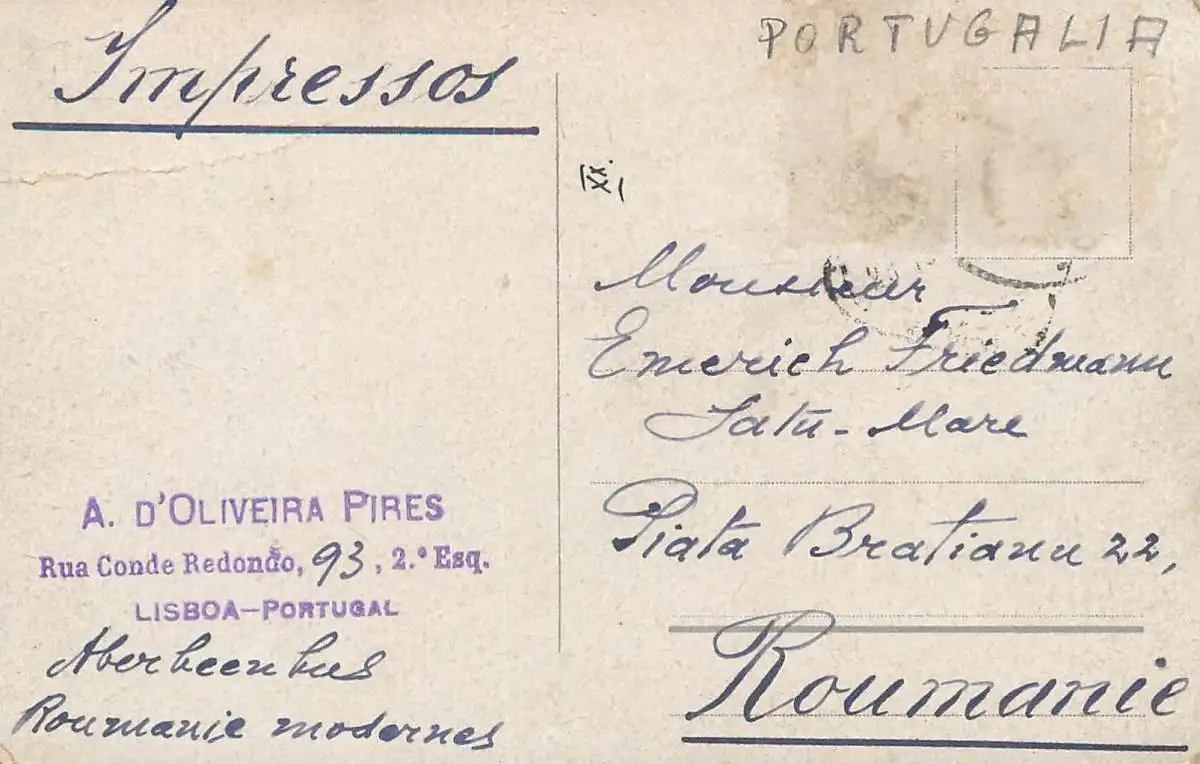 PORTUGALIA
Impressos
Monsieur
Emerich Friedmann
Satu-Mare
Piata Bratianu 22,
Roumanie
A. D'OLIVEIRA PIRES
Rua Conde Redondo, 93, 2.º Esq.
LISBOA-PORTUGAL
Roumanie modernes